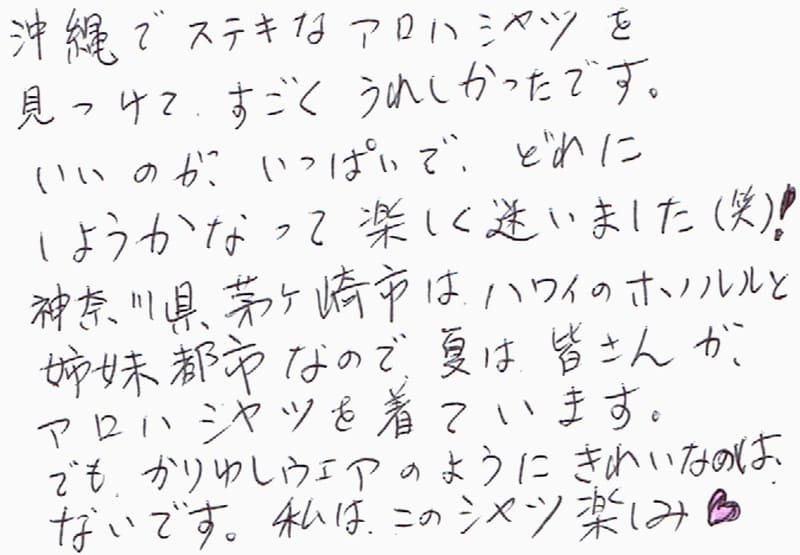 沖縄でステキなアロハシャツを
見つけて、すごくうれしかったです。
いいのが、いっぱいで、どれに
しようかなって楽しく迷いました(笑)!
神奈川県、茅ヶ崎市は、ハワイのホノルルと
姉妹都市なので、夏は、皆さんが、
アロハシャツを着ています。
でも、かりゆしウエアのようにきれいなのは、
ないです。私は、このシャツ楽しみ